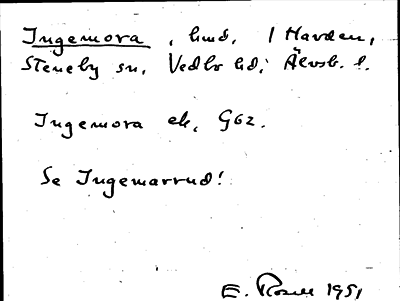 Ingemora, hmd, / Harden,
Steneby sn, Vedbo hd, Älvsb. l.
Ingemora ek, G62.
Se Ingemarrud!
E. Rosell 1951